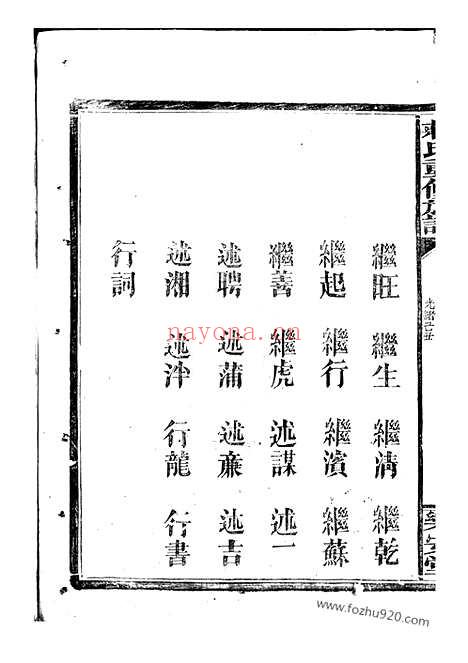 繼旺 繼生 繼清 繼乾
繼起 繼行 繼濱 繼蘇
繼善 繼虎 述謀 述一
述聘 述蒲 述亷 述吉
述湘 述泮 行龍 行書
行詞
nayona.cn
www.fozhu920.com